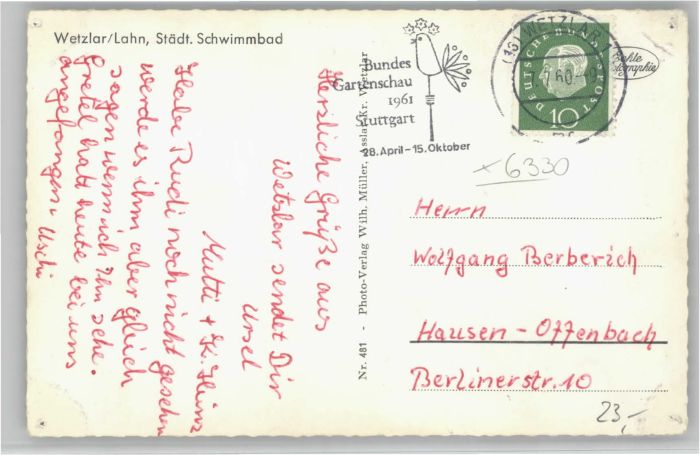 Wetzlar/Lahn, Städt. Schwimmbad
Herzliche Grüße aus
Wetzlar sendet Dir
Ursel
Mutti + K. Heinz
Habe Rudi noch nicht gesehen
werde es ihm aber gleich
sagen wenn ich Ihn sehe.
Gretel hat heute bei uns
angefangen. Uschi
Nr. 481 - Photo-Verlag Wilh. Müller, Asslar Kr. Wetzlar
Bundes
Gartenschau
1961
Stuttgart
28. April - 15. Oktober
(16) WETZLAR
60
DEUTSCHE BUNDESPOST
10
Echte
Photographie
6330
Herrn
Wolfgang Berberich
Hausen - Offenbach
Berlinerstr. 10
23,-